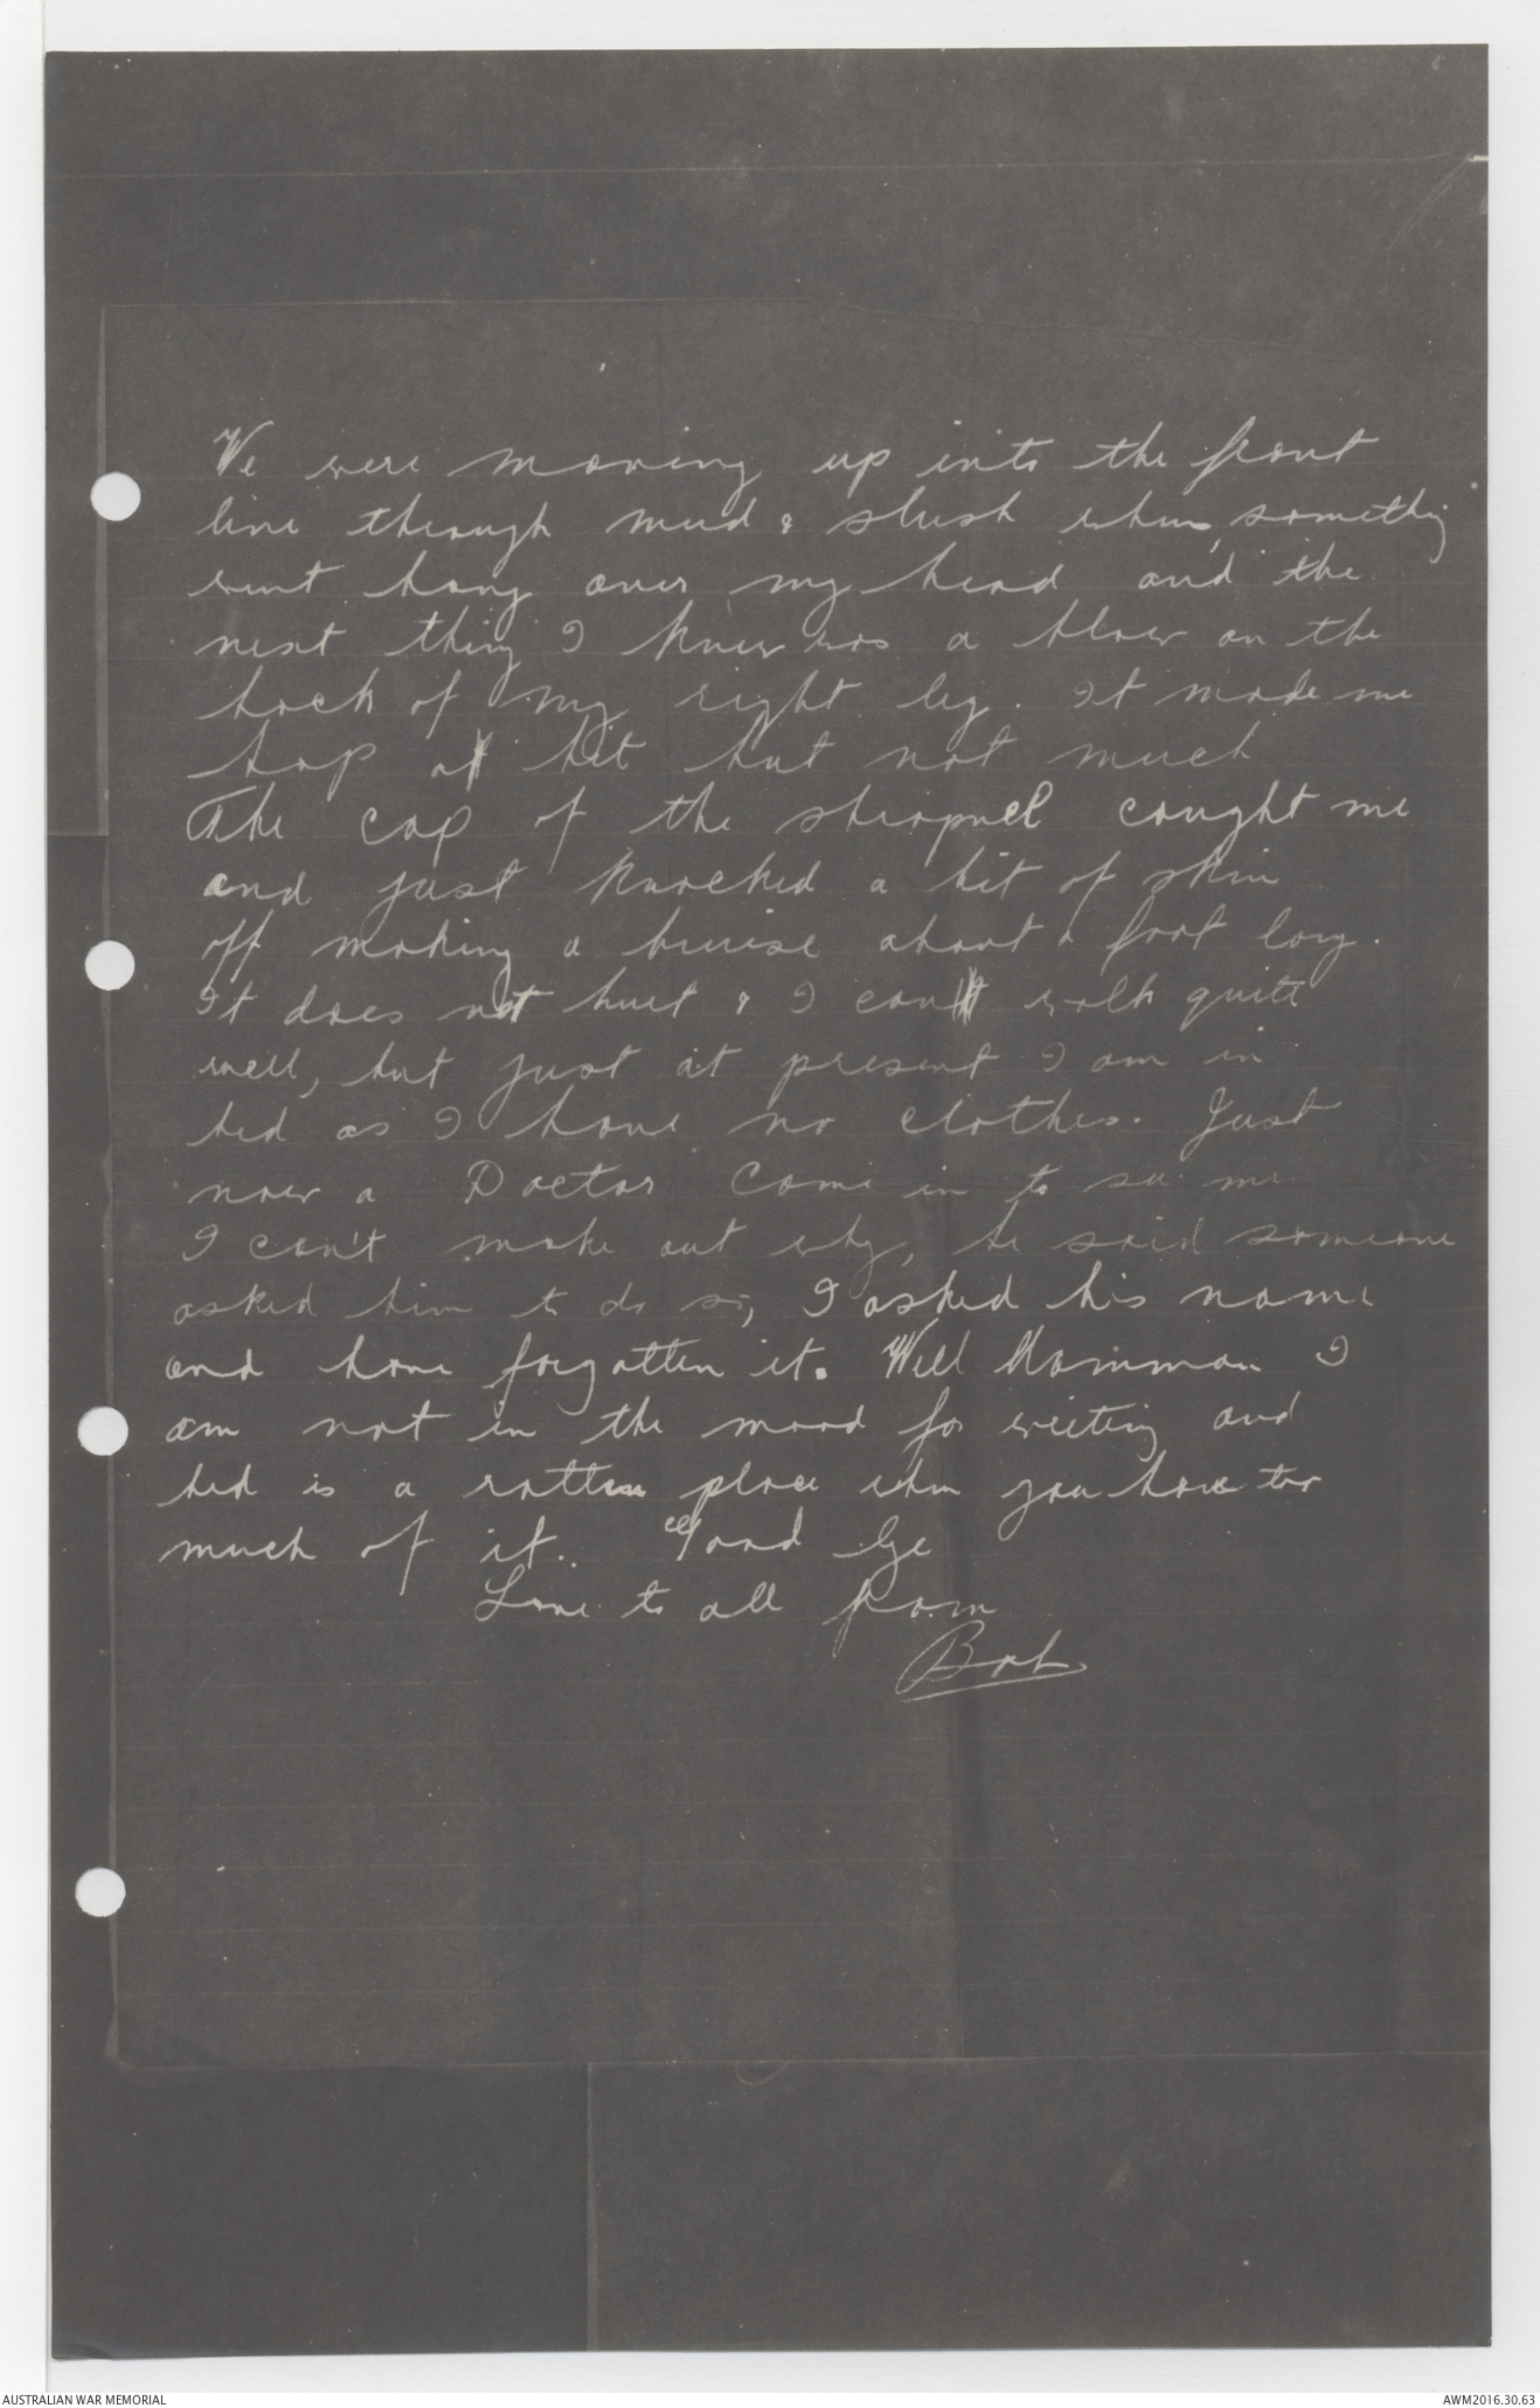 We were moving up into the front
line through mud & slush when somethig
went bang over my head and the
next thing I knew was a blow on the
back of my right leg. It made me
hop a bit but not much
The cap of the shrapnel caught me
and just knocked a bit of skin
off making a bruise about a foot long.
It does not hurt & I can walk quite
well, but just at present I am in
bed as I have no clothes. Just
now a Doctor Came in to see me
I can't make out why, he said someone
asked him to do so, I asked his name
and have forgotten it. Well Mamman I
am not in the mood for writing and
bed is a rotten place when you have too
much of it. Good bye
Love to all from
Bob
AUSTRALIAN WAR MEMORIAL
AWM2016.30.63